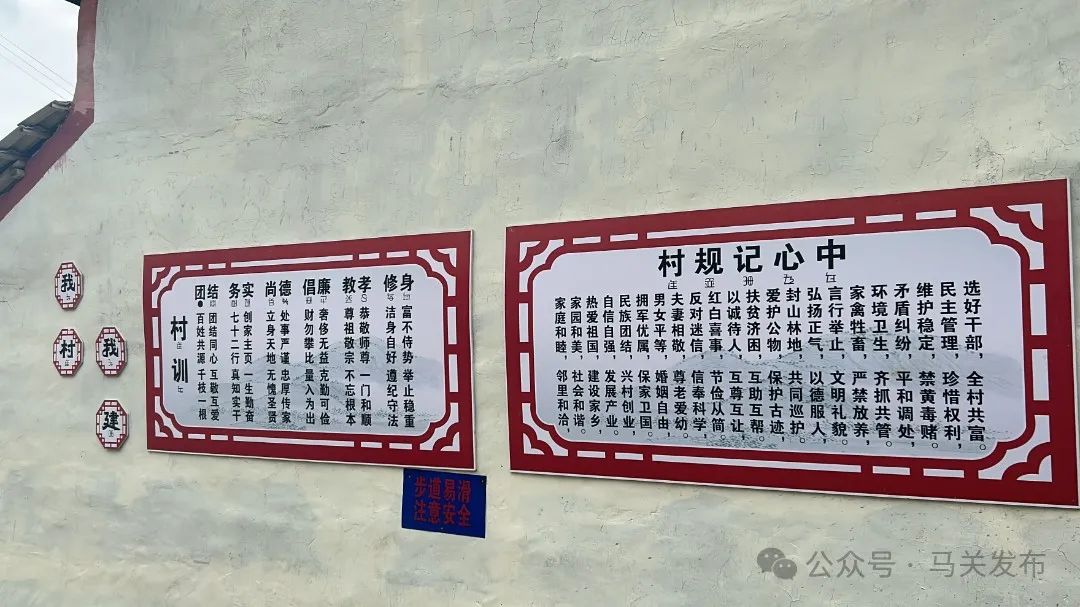 我
村
我
建
村训
团结
百姓共源 千枝一根
团结同心 互敬互爱
务实
七十二行 真知实干
创家主页 一生勤奋
尚德
立身天地 无愧圣贤
处事严谨 忠厚传家
倡廉
财勿攀比 量入为出
奢侈无益 克勤可俭
教孝
尊祖敬宗 不忘根本
恭敬师尊 一门和顺
修身
洁身自好 遵纪守法
富不侍势 举止稳重
村规记心中
选好干部，全村共富。
民主管理，珍惜权利，
维护稳定，禁黄毒赌。
矛盾纠纷，平和调处，
环境卫生，齐抓共管。
家禽牲畜，严禁放养，
言行举止，文明礼貌。
弘扬正气，以德服人，
封山林地，共同巡护。
爱护公物，保护古迹，
扶贫济困，互助互帮。
以诚待人，互尊互让，
红白喜事，节俭从简。
反对迷信，信奉科学，
夫妻相敬，尊老爱幼。
男女平等，婚姻自由，
拥军优属，保家卫国。
民族团结，兴村创业，
自信自强，发展产业。
热爱祖国，建设家乡，
家园和美，社会和谐。
家庭和睦，邻里和洽，
步道易滑
注意安全
公众号·马关发布